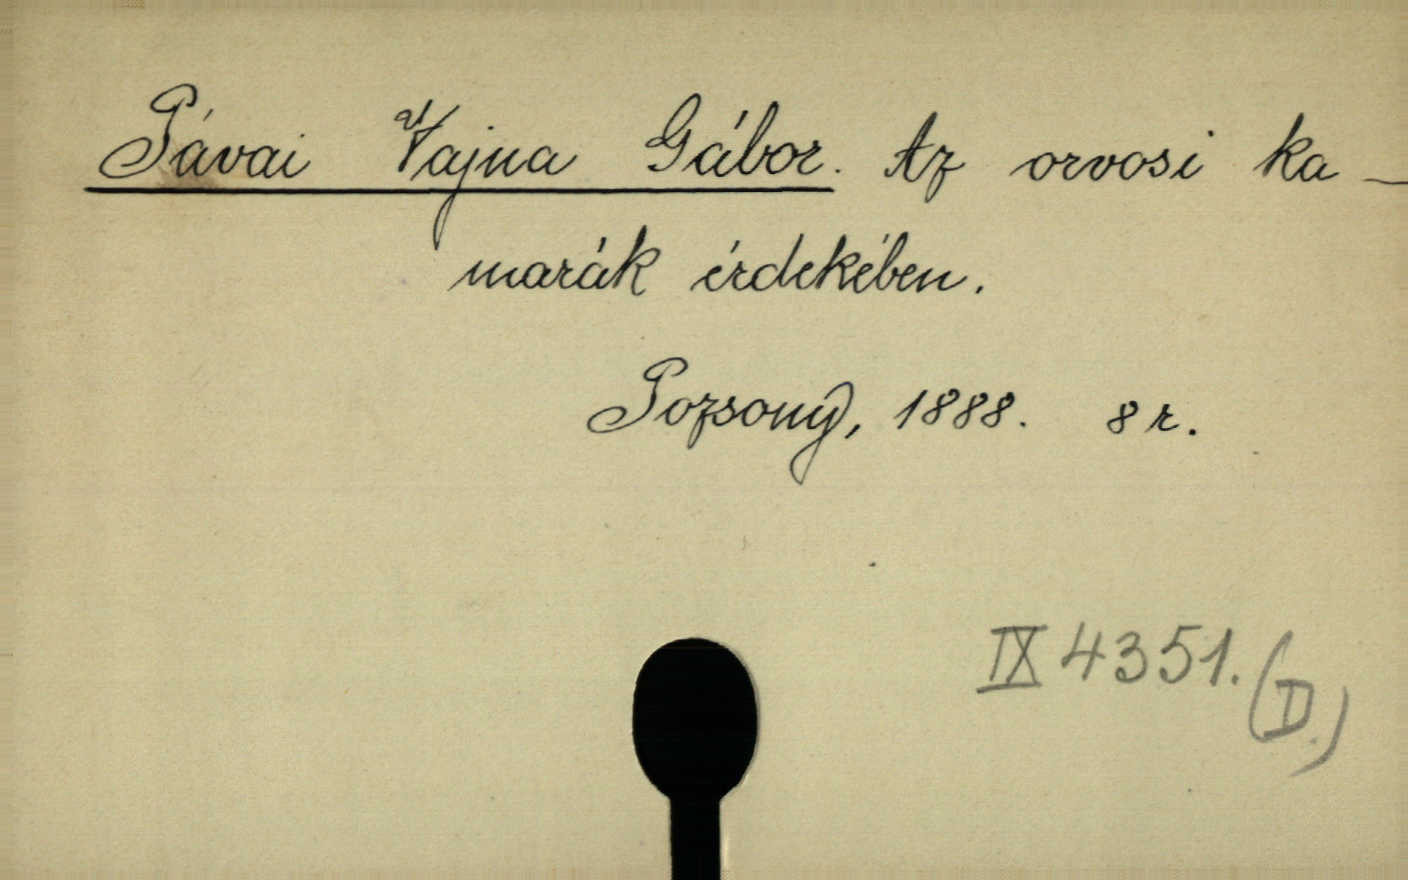 Pávai Vajna Gábor. Az orvosi ka-
marák érdekében.
Pozsony, 1888. 8 r.
IX 4351. (D.)